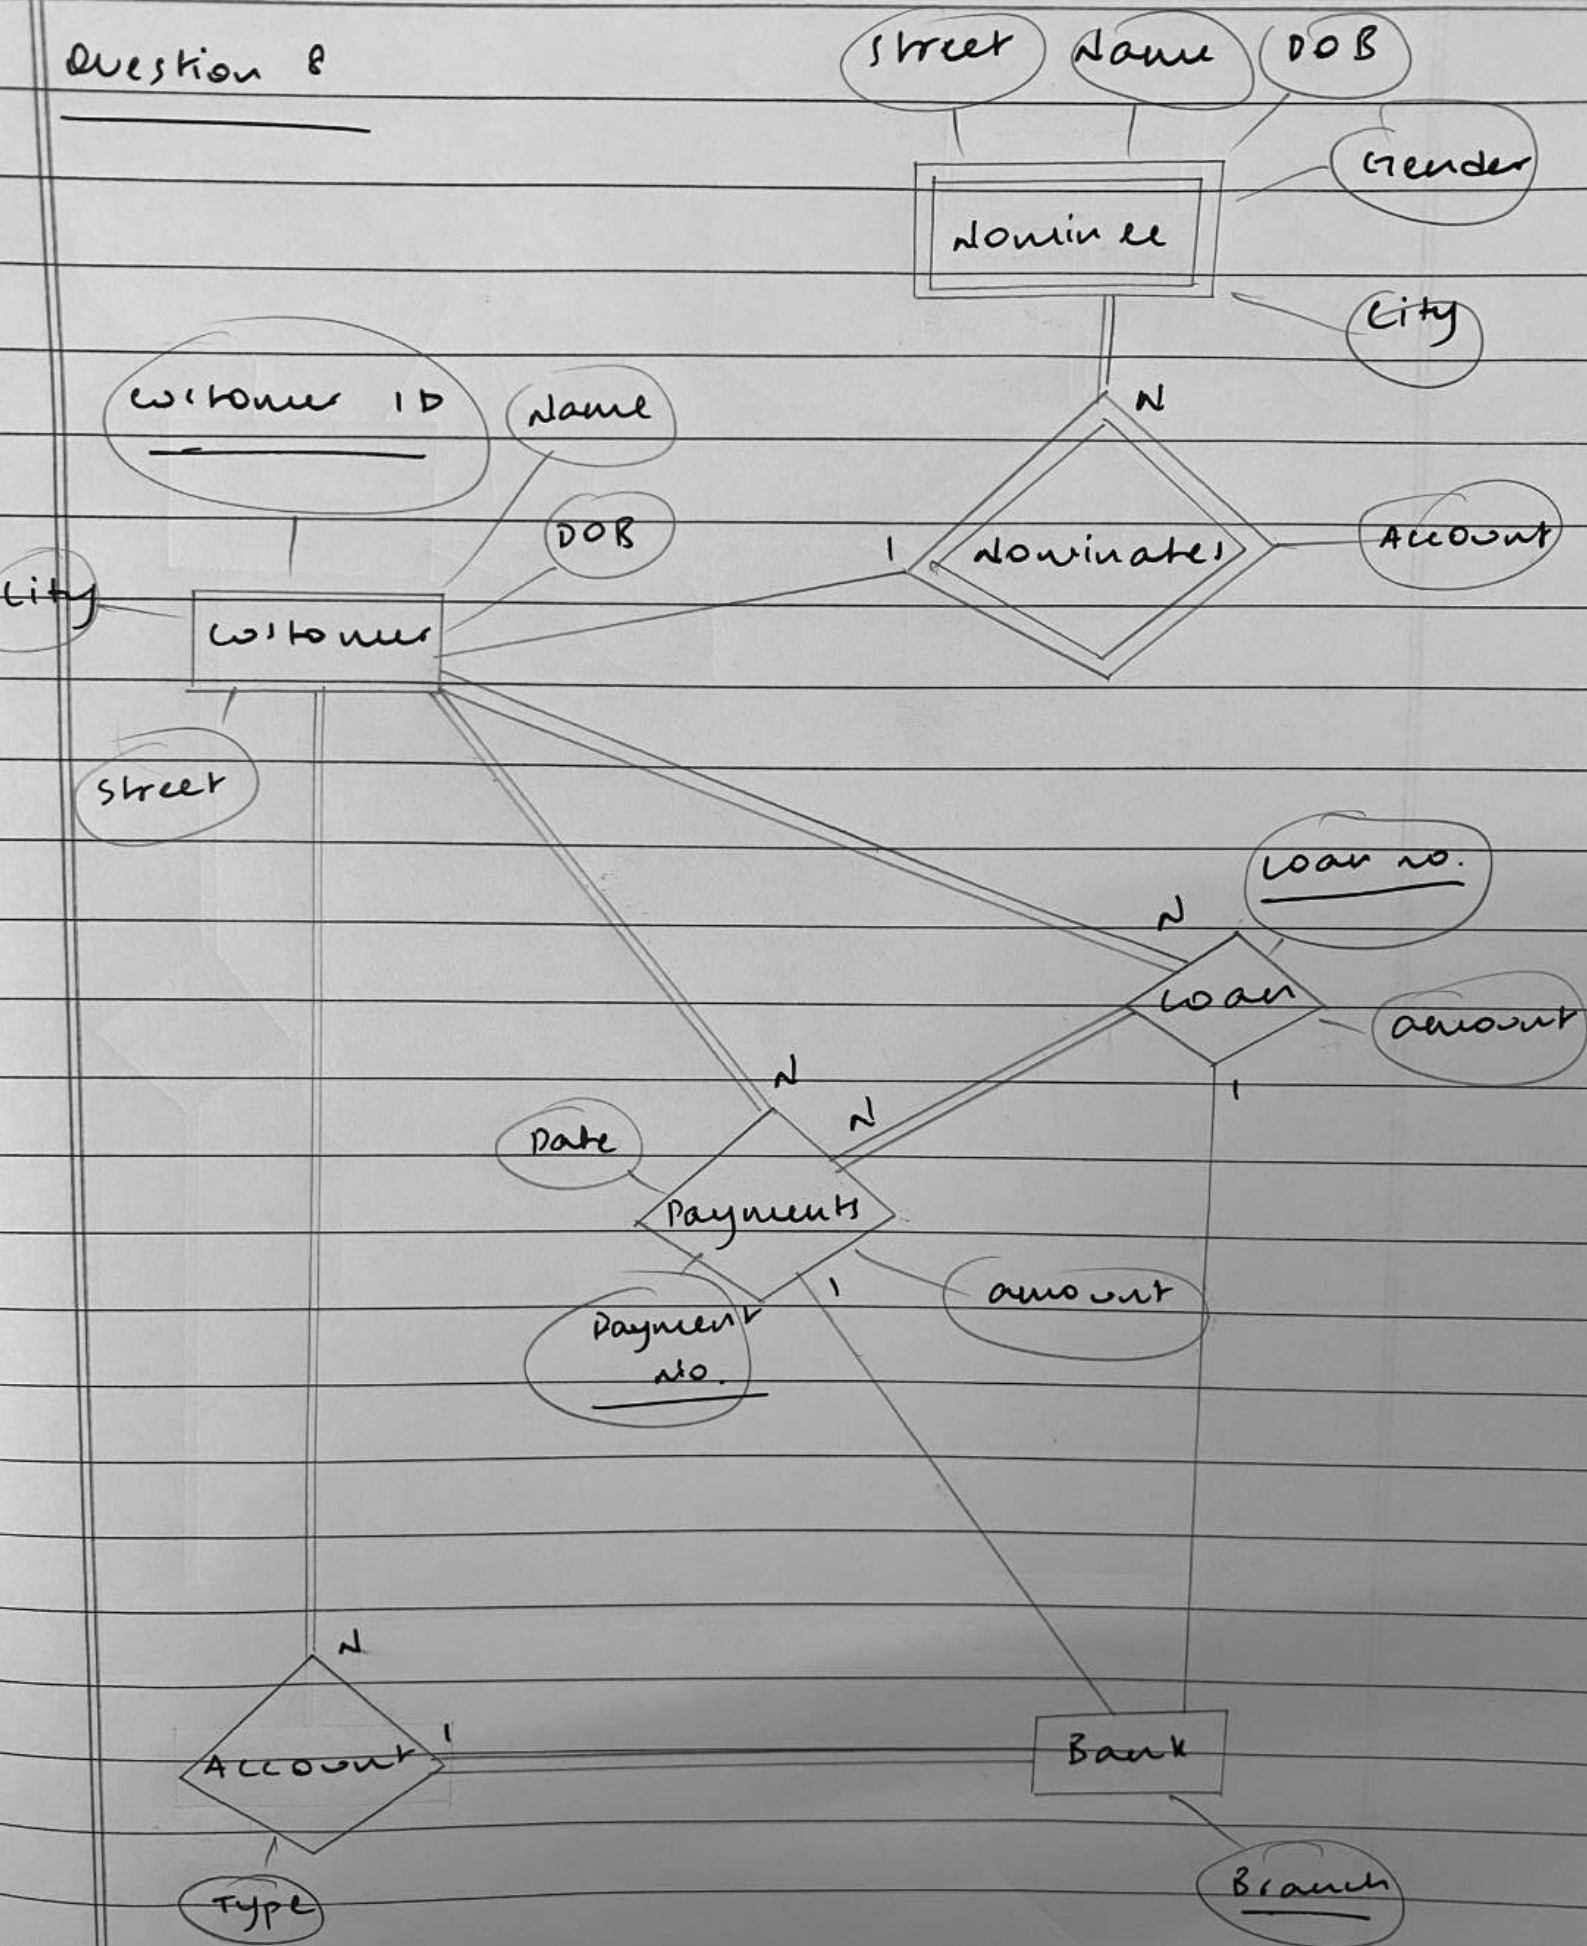 Question 8
Street Name DOB
Gender
Nominee
City
Customer ID Name
N
DOB
1 Nominates Account
City
Customer
Street
Loan no.
N
Loan
amount
N
1
N
Date
Payments
1
amount
Payment
No.
N
1
Account
Bank
Type
Branch